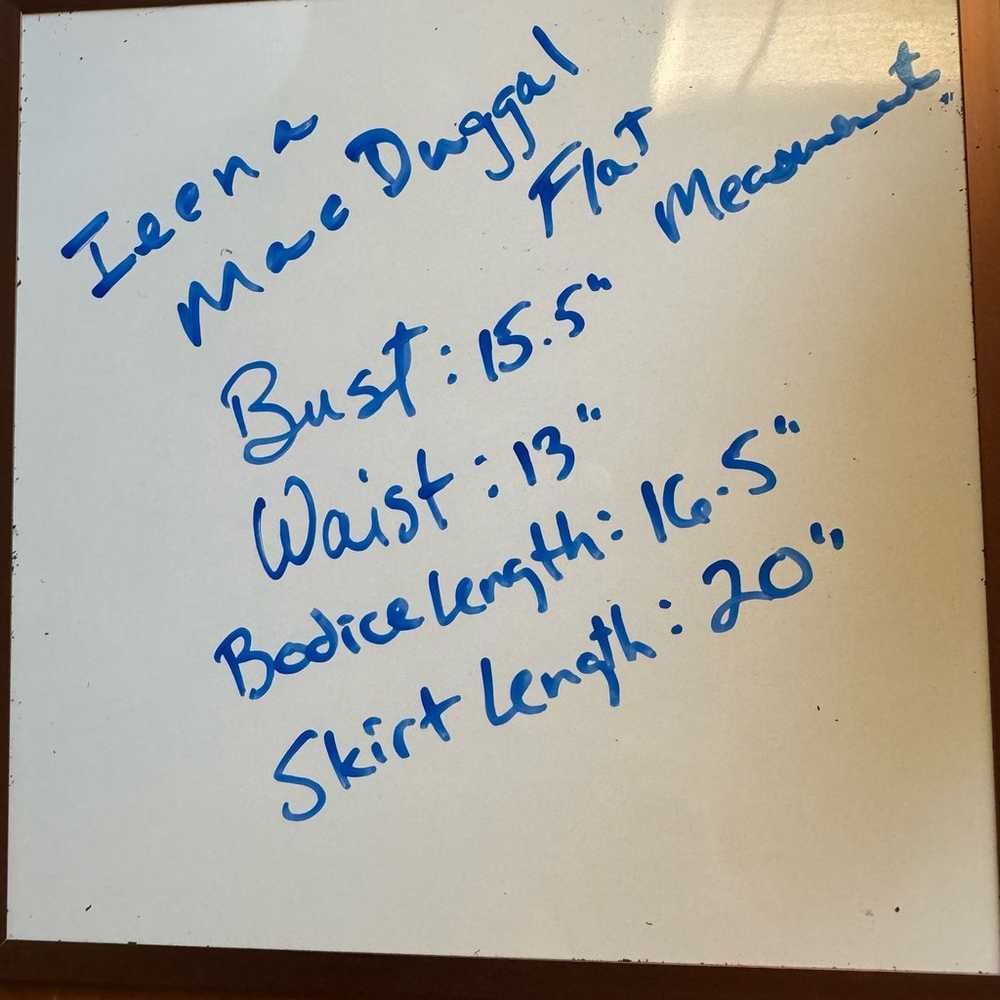 Ieena
Mac Duggal
Flat
Measurement
Bust: 15.5"
Waist: 13"
Bodice length: 16.5"
Skirt length: 20"